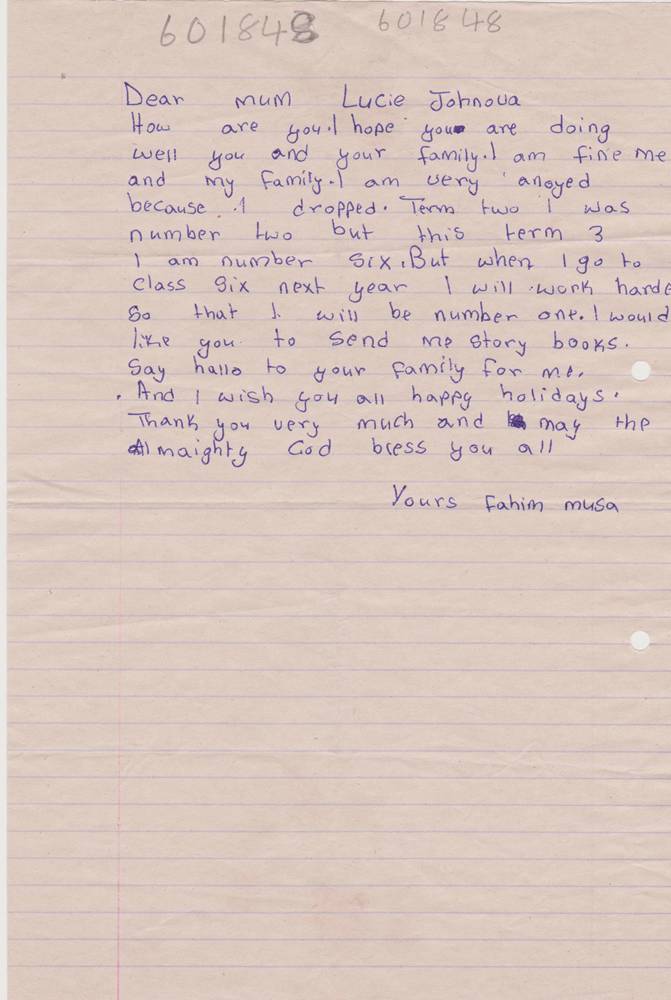 601848 601848
Dear mum Lucie Johnova
How are you.I hope you are doing
well you and your family.I am fine me
and my family.I am very anoyed
because I dropped. Term two I was
number two but this term 3
I am number six.But when I go to
class six next year I will work harde
So that I will be number one.I would
like you to send me story books.
Say hallo to your family for me.
And I wish you all happy holidays.
Thank you very much and may the
Almaighty God bless you all
Yours fahim musa